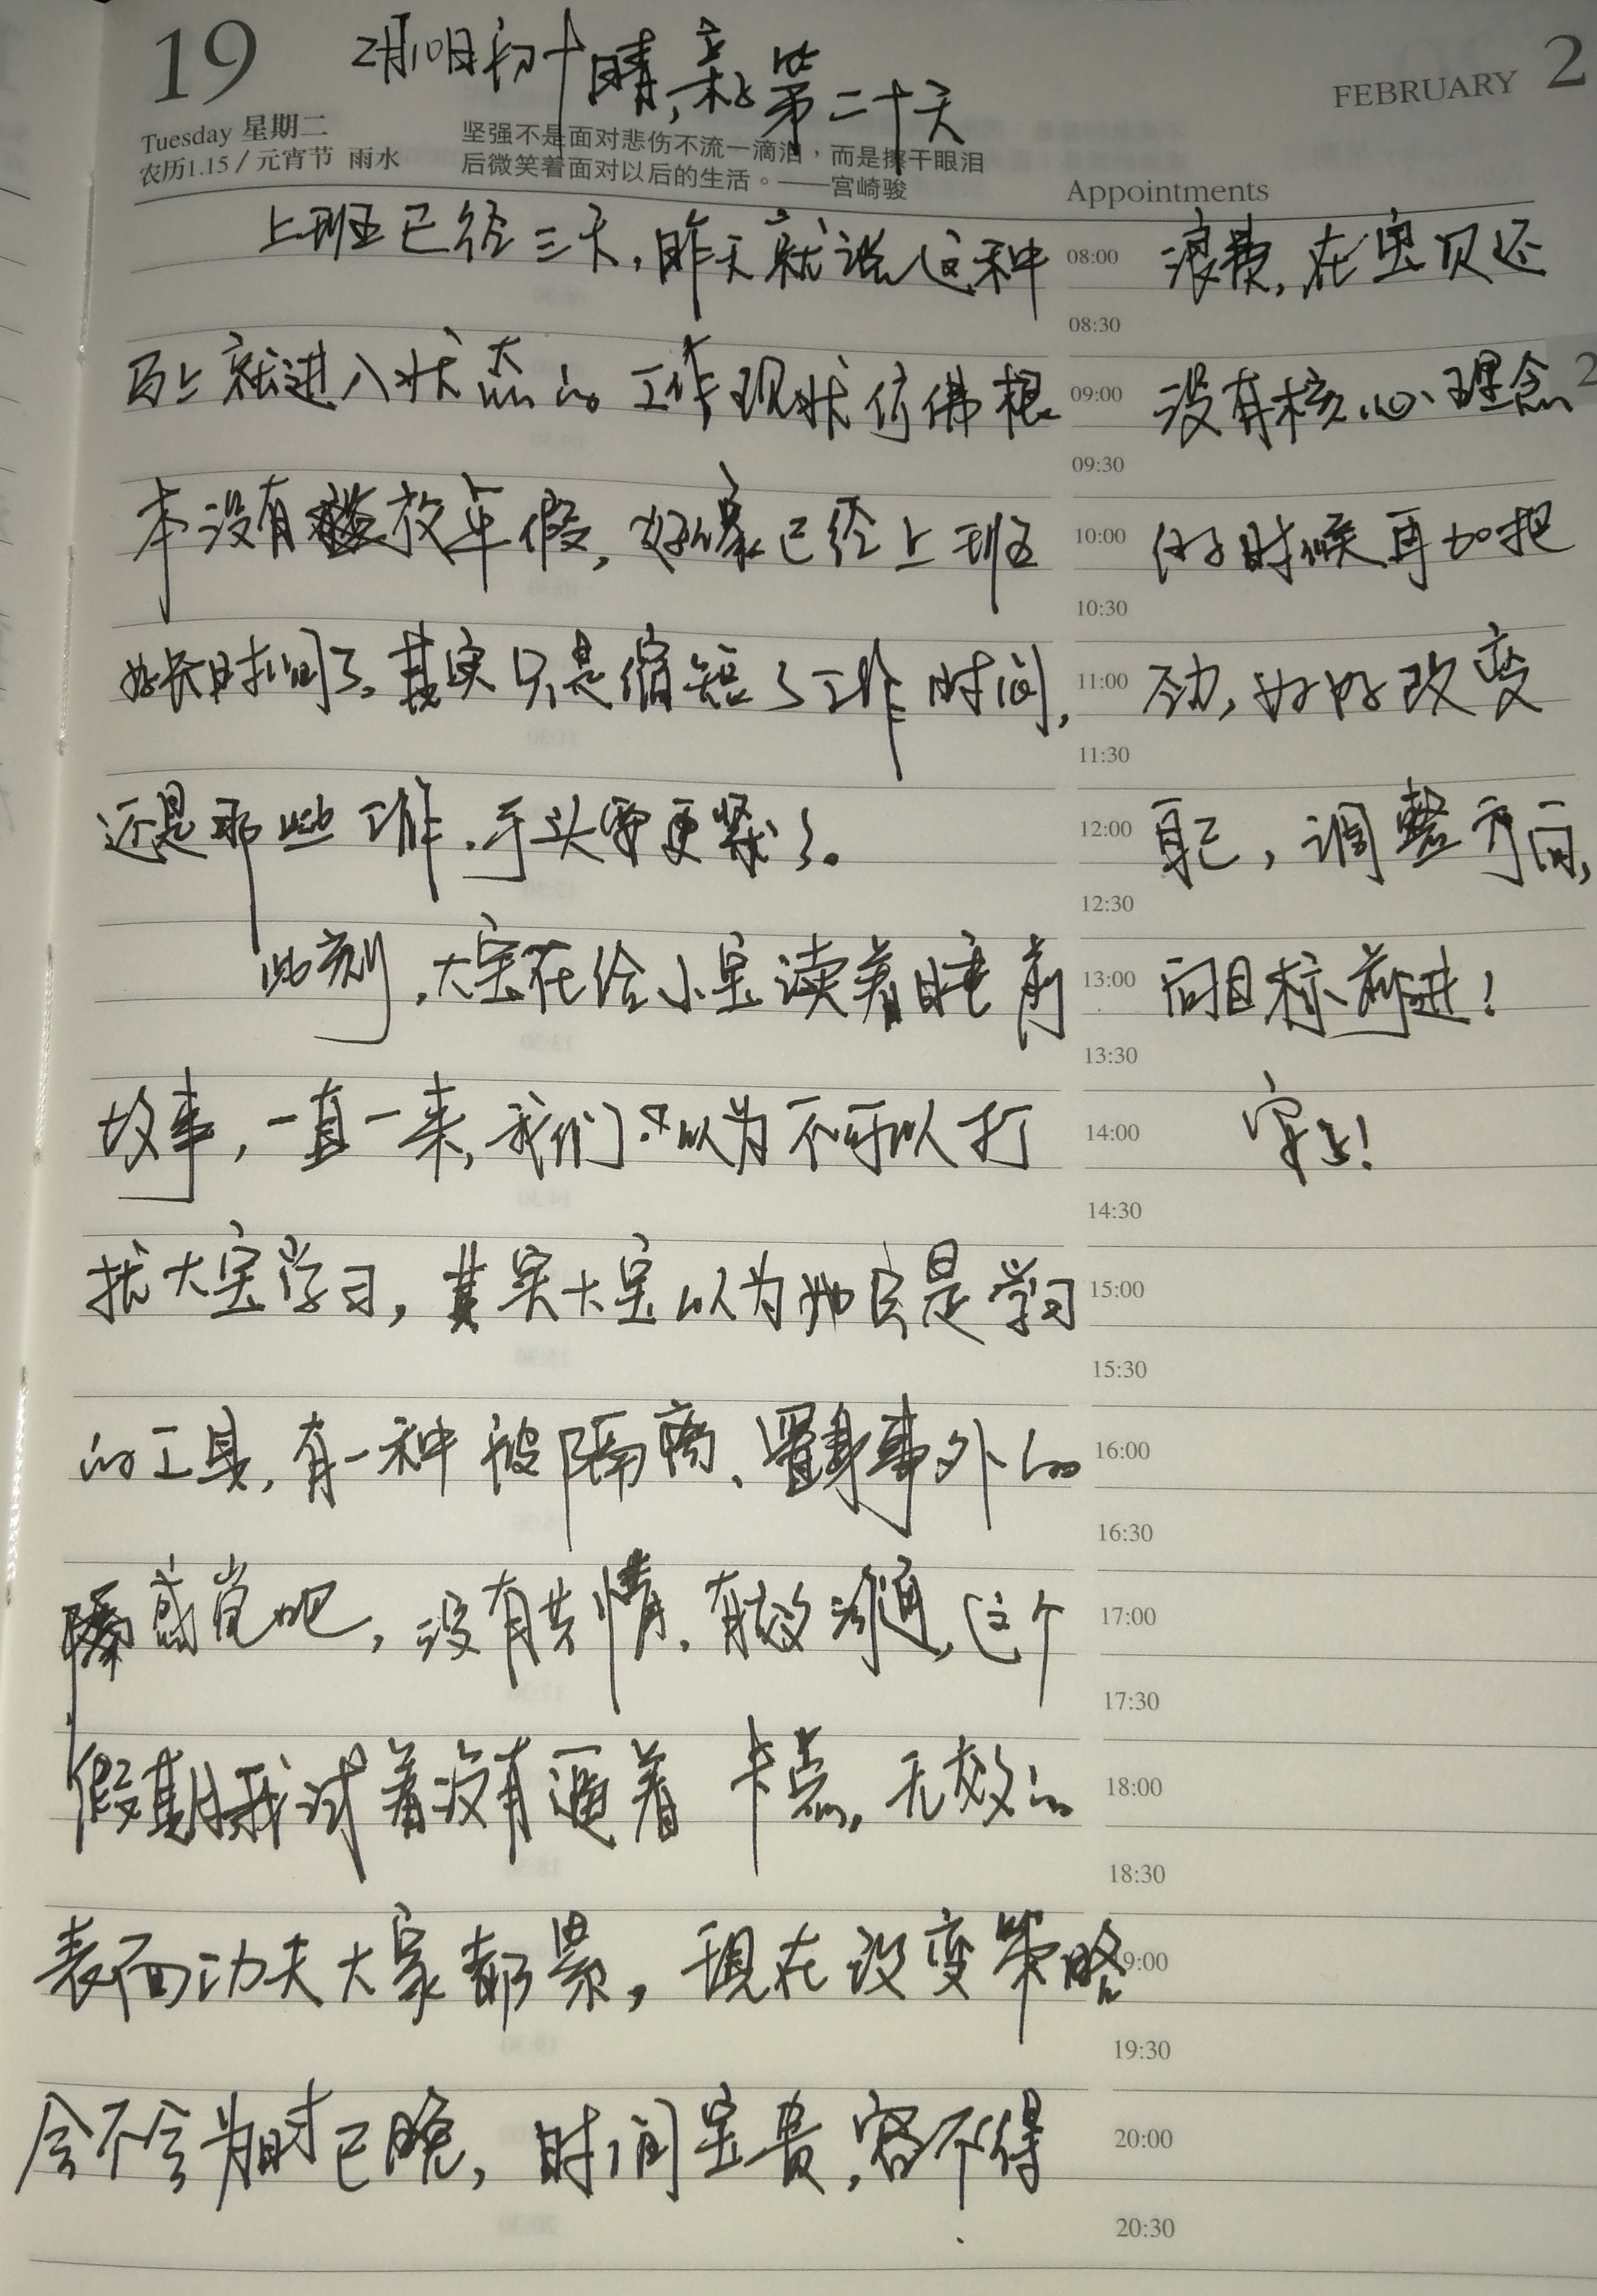 19
2月10日初十晴,亲子第二十天
FEBRUARY 2
Tuesday 星期二
农历1.15 / 元宵节 雨水
坚强不是面对悲伤不流一滴泪,而是擦干眼泪
后微笑着面对以后的生活。——宫崎骏
Appointments
上班已经三天,昨天就说这种
马上就进入状态的工作现状仿佛根
本没有放年假,好像已经上班
好长时间了。其实只是缩短了工作时间,
还是那些工作,手头要更紧了。
此刻,大宝在给小宝读着睡前
故事,一直一来,我们以为不可以打
扰大宝学习,其实大宝以为她只是学习
的工具,有一种被隔离、置身事外的
感觉吧,没有共情,有效沟通,这个
假期我试着没有逼着 卡点,无效的
表面功夫大家都累,现在改变策略
会不会为时已晚,时间宝贵,容不得
08:00
浪费,在宝贝还
08:30
09:00
没有核心理念
2
09:30
10:00
的时候再加把
10:30
11:00
劲,好好改变
11:30
12:00
自己,调整方向,
12:30
13:00
向目标前进!
13:30
14:00
安!
14:30
15:00
15:30
16:00
16:30
17:00
17:30
18:00
18:30
9:00
19:30
20:00
20:30